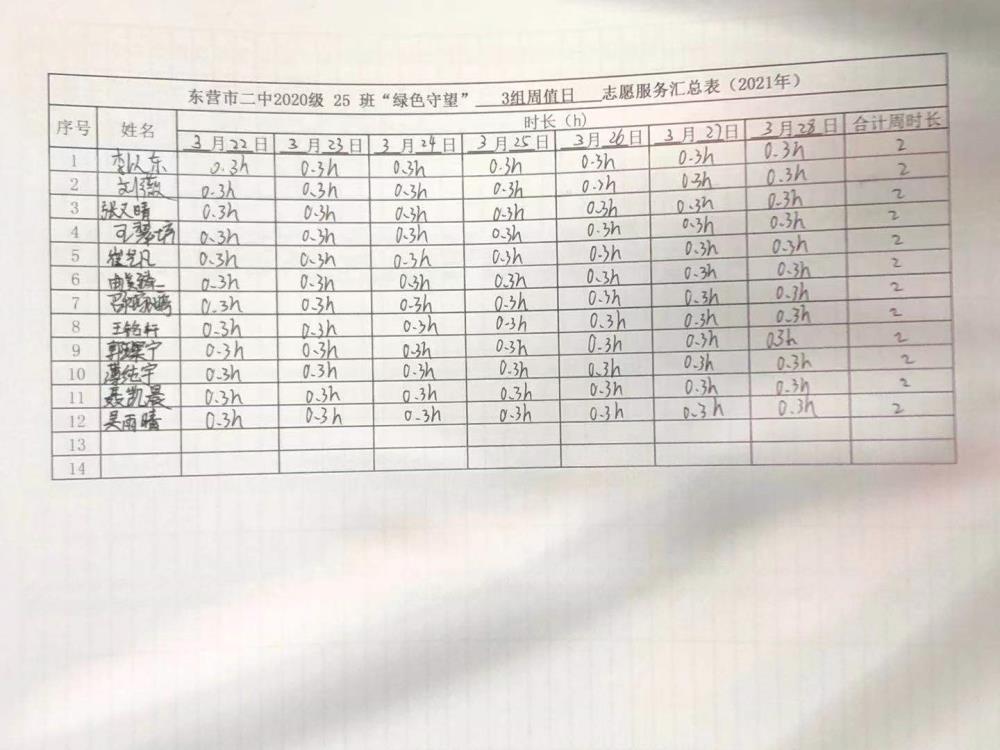 东营市二中2020级 25 班“绿色守望” 3组周值日 志愿服务汇总表（2021年）
序号 姓名 时长（h） 合计周时长
3月22日 3月23日 3月24日 3月25日 3月26日 3月27日 3月28日
1 李以东 0.3h 0.3h 0.3h 0.3h 0.3h 0.3h 0.3h 2
2 刘薇 0.3h 0.3h 0.3h 0.3h 0.3h 0.3h 0.3h 2
3 张又晴 0.3h 0.3h 0.3h 0.3h 0.3h 0.3h 0.3h 2
4 0.3h 0.3h 0.3h 0.3h 0.3h 0.3h 0.3h 2
5 0.3h 0.3h 0.3h 0.3h 0.3h 0.3h 0.3h 2
6 0.3h 0.3h 0.3h 0.3h 0.3h 0.3h 0.3h 2
7 0.3h 0.3h 0.3h 0.3h 0.3h 0.3h 0.3h 2
8 王铭轩 0.3h 0.3h 0.3h 0.3h 0.3h 0.3h 0.3h 2
9 0.3h 0.3h 0.3h 0.3h 0.3h 0.3h 0.3h 2
10 0.3h 0.3h 0.3h 0.3h 0.3h 0.3h 0.3h 2
11 聂凯晨 0.3h 0.3h 0.3h 0.3h 0.3h 0.3h 0.3h 2
12 吴雨晴 0.3h 0.3h 0.3h 0.3h 0.3h 0.3h 0.3h 2
13
14